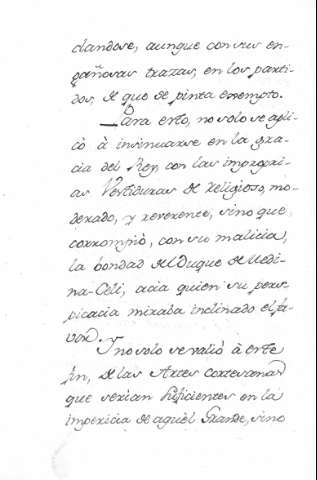 dandose, aunque con sus en-
gañosas trazas, en los parti-
dos, de que se pinta esempto.
Para esto, no solo se apli-
có à insinuarse en la gra-
cia del Rey, con las impropri-
as Vestiduras de Religioso, mo-
derado, y reverence, sino que
corrompió, con su malicia,
la bondad del Duque de Medi-
na-Celi, acia quien su pers-
picacia miraba inclinado el fa-
vor.
Y no solo se valió à este
fin, de las Artes cortesanas
que serian suficientes en la
impericia de aquel Grande, sino